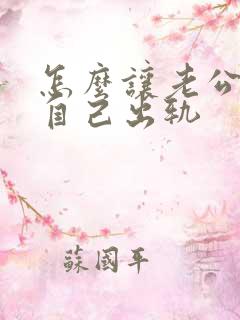 怎麼讓老公
自己出軌
蘇國平